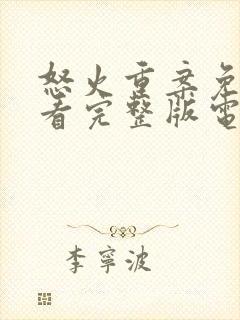 怒火重案免
看完整版電
李寧波